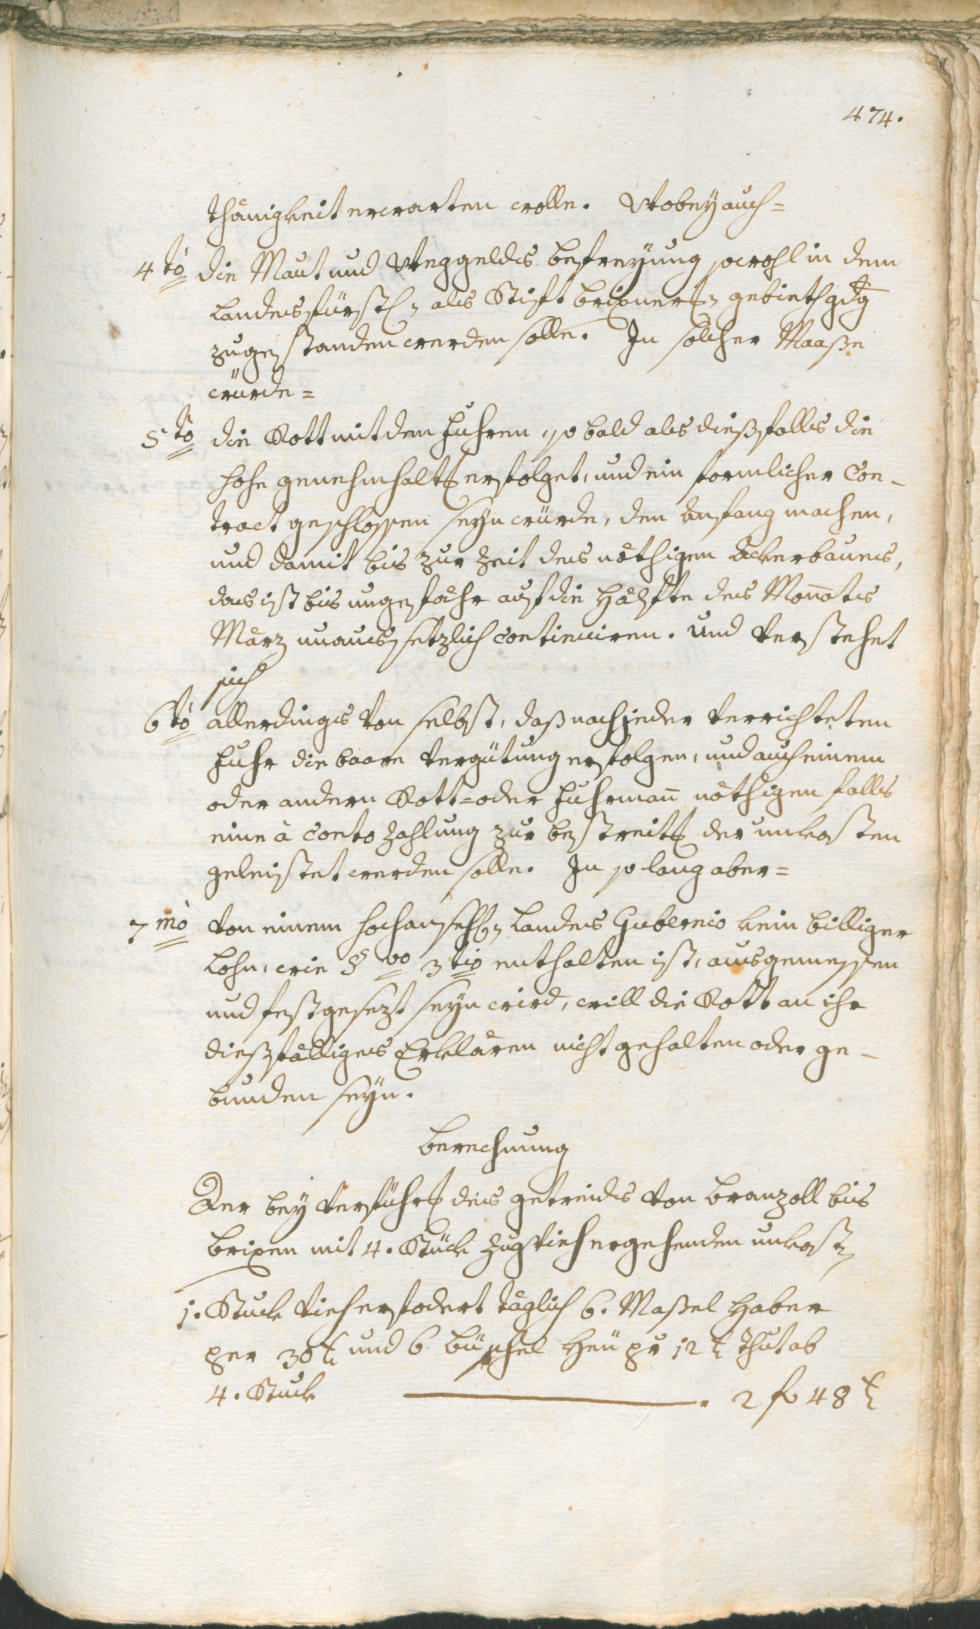 474.
thänigkeit erwarten wolle. Wobey auch=
4to die Maut und Weggelds befreyung sowohl in dem
Landesfürstl. als Stift brixnerisch gebieth gdg
zugestanden werden solle. In solcher Maaße
würde=
5to die Rott mit dem Fuhren, so bald als dießfalls die
hohe genehmhalt. erfolget, und ein formlicher Con-
tract geschlossen seyn würde, den Anfang machen,
und damit bis zur Zeit des nöthigen Ackerbaues,
das ist bis ungefähr auf die Hälfte des Monats
März unaussetzlich continuiren. Und verstehet
sich
6to allerdings von selbst, daß nach jeder verrichteten
Fuhr die baare Vergütung erfolgen, und auch einem
oder andern Rott= oder Fuhrmann nöthigen falls
eine à conto Zahlung zur bestreit. der unkosten
geleistet werden solle. In so lang aber=
7mò von einem hochansehl. Landes Gubernio kein billiger
Lohn, wie §vo 3tio enthalten ist, ausgemessen
und festgesezt seyn wird, will die Rott an ihr
dießfälliges Erklären nicht gehalten oder ge-
bunden seyn.
Berechnung
Der bey Verführ. des getreids von Branzoll bis
Brixen mit 4. Stück Zugvieh ergehenden unkost.
1. Stuck Vieh erfodert täglich 6. Maßel Haber
per 30 x und 6 büschel Heu pr 12 x thut ab
4. Stuck . 2 f 48 x